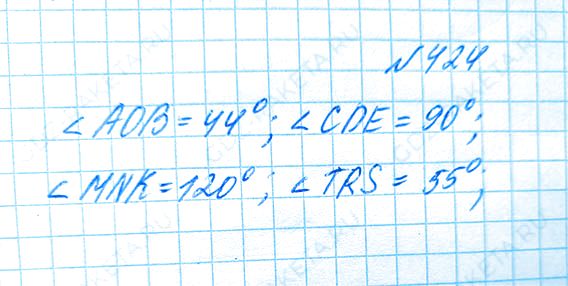 №424
∠AOB = 44°; ∠CDE = 90°;
∠MNK = 120°; ∠TRS = 55°;